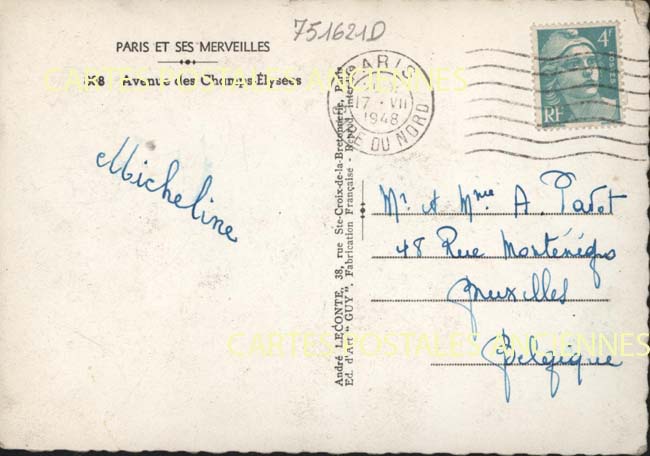 751621D
PARIS ET SES MERVEILLES
Avenue des Champs Élysées
CARTES POSTALES ANCIENNES
PARIS
17 - VII
1948
DU NORD
4F
POSTES
RF
Micheline
André LECONTE, 38, rue Ste-Croix-de-la-Bretonnerie, Paris
Ed. d'Art "GUY". Fabrication Française - Reprod. Interdite
Mr et Mme A.
48 Rue Monténégro
Bruxelles
Belgique
CARTES POSTALES ANCIENNES